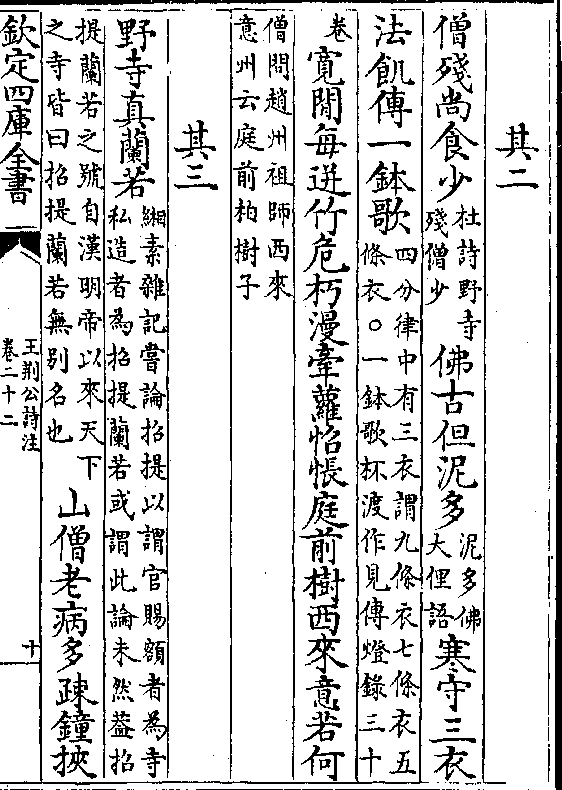 其二
僧殘尚食少杜詩野寺殘僧少佛古但泥多泥多佛大俚語寒守三衣
法飢傳一鉢歌四分律中有三衣謂九條衣七條衣五條衣○一鉢歌杯渡作見傳燈錄三十
卷寛閒每迸竹危朽漫牽蘿怊悵庭前樹西來意若何
僧問趙州祖師西來意州云庭前柏樹子
其三
野寺真蘭若緗素雜記嘗論招提以謂官賜額者為寺私造者為招提蘭若或謂此論未然葢招
提蘭若之號自漢明帝以來天下之寺皆曰招提蘭若無别名也山僧老病多疎鐘挾
欽定四庫全書
王荆公詩注
卷二十二
十